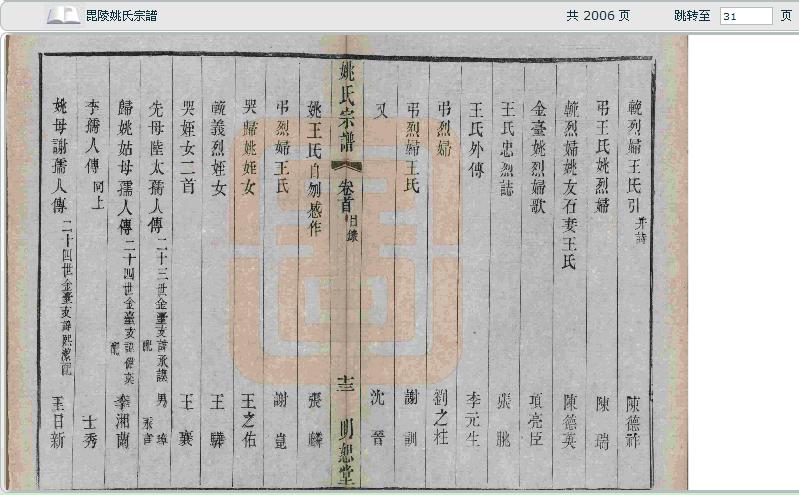 毘陵姚氏宗譜
共 2006 页
跳转至 31 页
輓烈婦王氏引 并詩 陳德祚
弔王氏姚烈婦 陳瑞
輓烈婦姚友石妻王氏 陳德英
金臺姚烈婦歌 項亮臣
王氏忠烈誌 張
王氏外傳 李元生
弔烈婦 劉之社
弔烈婦王氏 謝訓
又 沈晉
姚氏宗譜 卷首 目錄 十三 明恕堂
姚王氏自刎感作 張麟
弔烈婦王氏 謝
哭歸姚姪女 王之佑
輓義烈姪女 王
哭姪女二首 王襄
先母陸太孺人傳 二十三世金臺支諱承謨配 男
歸姚姑母孺人傳 二十四世金臺支諱 配 李湘蘭
李孺人傳 同上 士秀
姚母謝孺人傳 二十四世金臺支諱熙 配 王日新